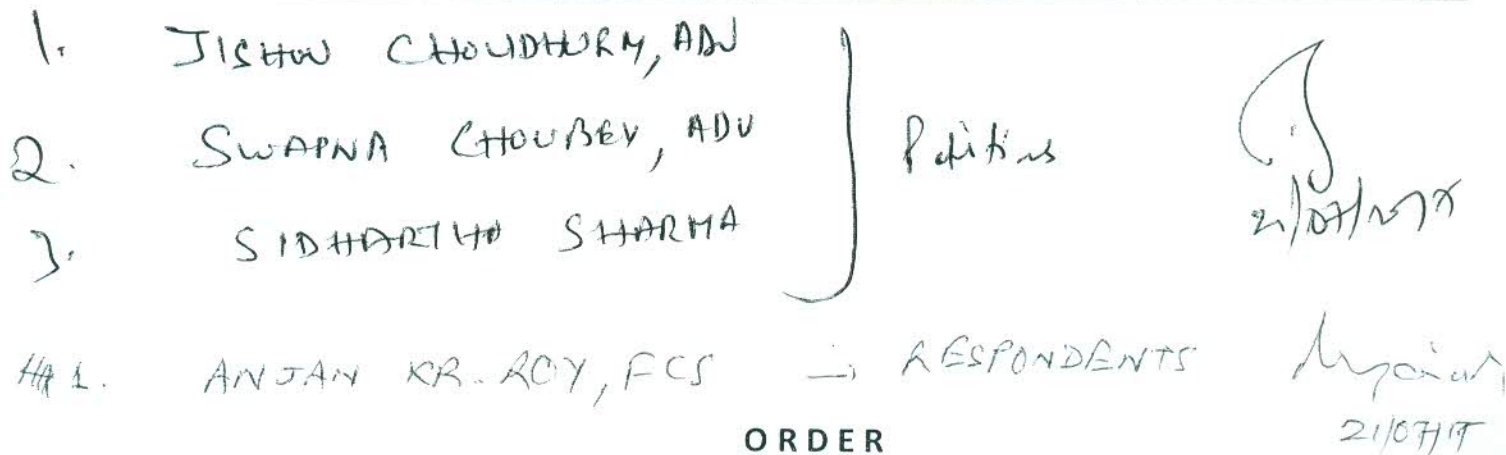 1. JISHNU CHOUDHURY, ADV
2. SWAPNA CHOUBEY, ADV
3. SIDHARTHA SHARMA
1. ANJAN KR. ROY, FCS → RESPONDENTS
21/07/17
ORDER